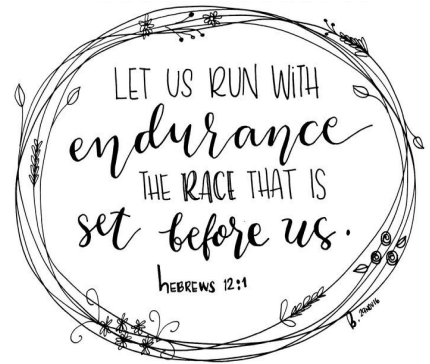 LET US RUN WITH
endurance
THE RACE THAT IS
set before us.
hEBREWS 12:1
B.